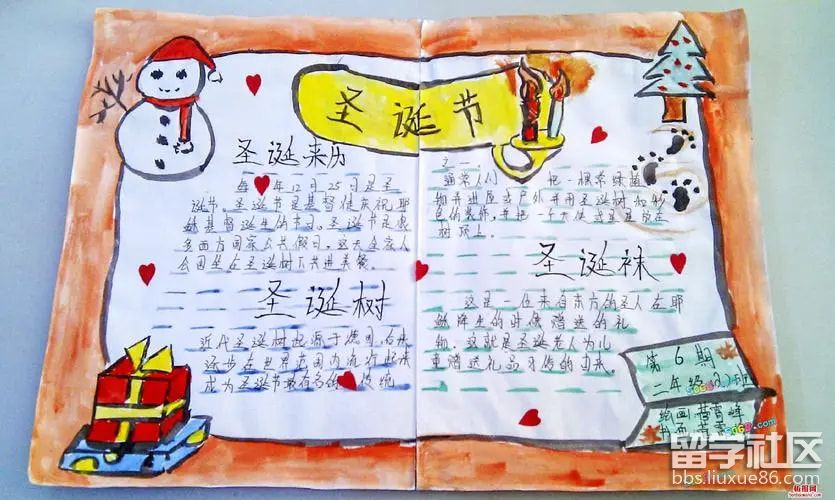 圣诞节
圣诞来历
每年12月25日是圣
诞节。圣诞节是基督徒庆祝耶
稣基督诞生的节日。圣诞节是很
多西方国家公共假日。这天全家人
会围坐在圣诞树下共进美餐。
圣诞树
近代圣诞树起源于德国，后来
逐步在世界范围内流行起来
成为圣诞节最有名的传统
之一。
通常人们 把一棵常绿植
物弄进屋或户外并用圣诞树和
色的装饰，并把一个天使或星星放在
树顶上。
圣诞袜
这是一位来自东方的圣人在耶
稣降生的时候赠送的礼
物，这就是圣诞老人为儿
童赠送礼品习俗的由来。
第6期
二年级(2)班
绘画
书画
留学社区
bbs.liuxue86.com